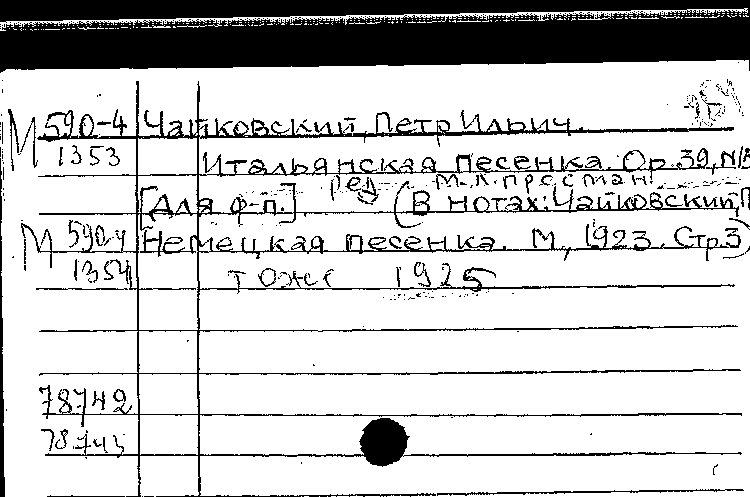 М 590-4 Чайковский, Петр Ильич.
1353 Итальянская песенка. Ор. 39, N
ред М.Л. Пресман.
[Для ф-п.] (В нотах: Чайковский, П
М 590-4 Немецкая песенка. М., 1923. Стр. 3)
1354 Тоже 1925
78.742